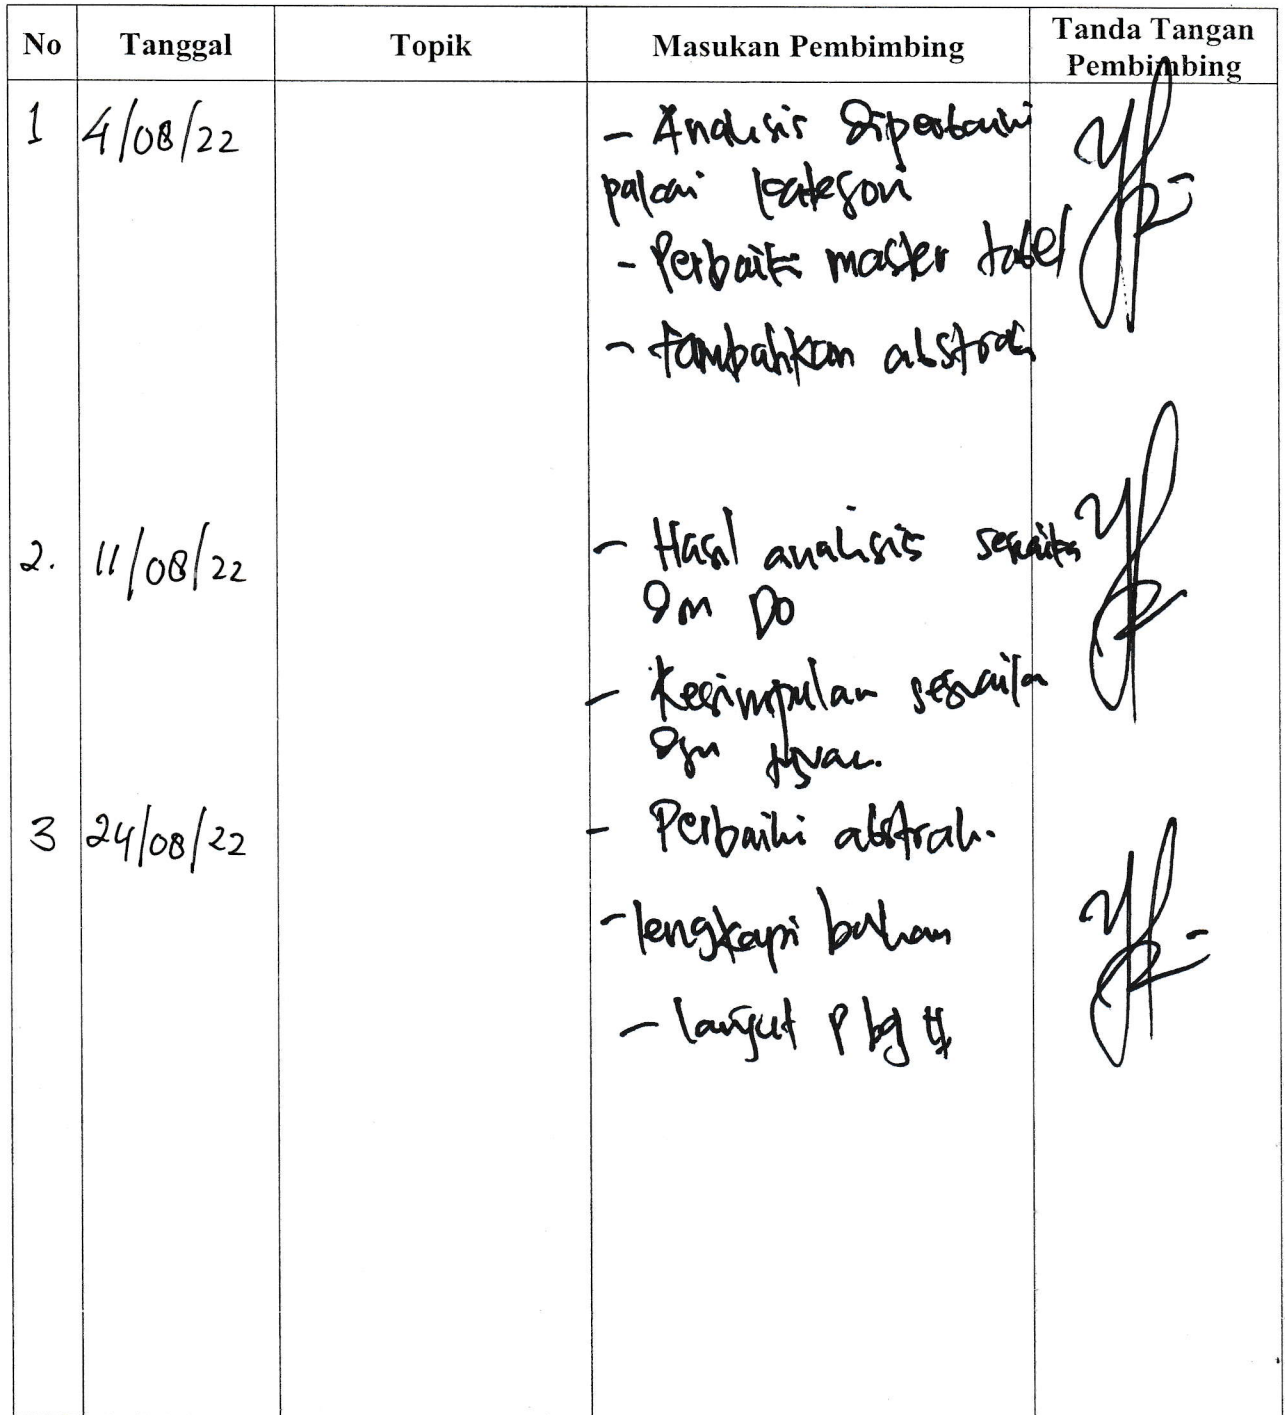 No Tanggal Topik Masukan Pembimbing Tanda Tangan Pembimbing
1 4/08/22 - Analisis diperbaiki
pakai kategori
- Perbaiki master tabel
- tambahkan abstrak
2. 11/08/22 - Hasil analisis sesuaikan
dgn DO
- Kesimpulan sesuaikan
dgn tujuan.
3 24/08/22 - Perbaiki abstrak.
- lengkapi bahan
- lanjut pbg